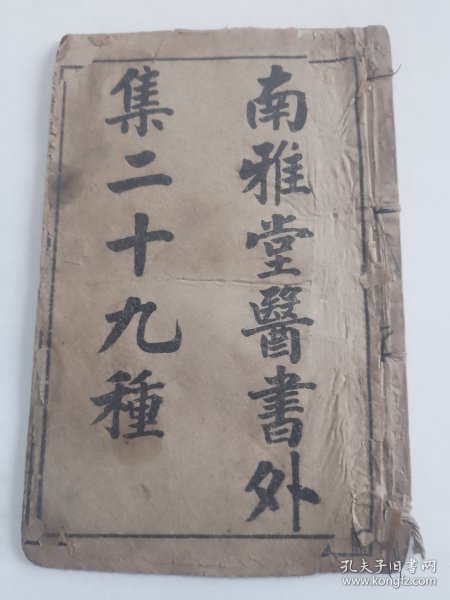 南雅堂醫書外
集二十九種
孔夫子旧书网
www.kongfz.com